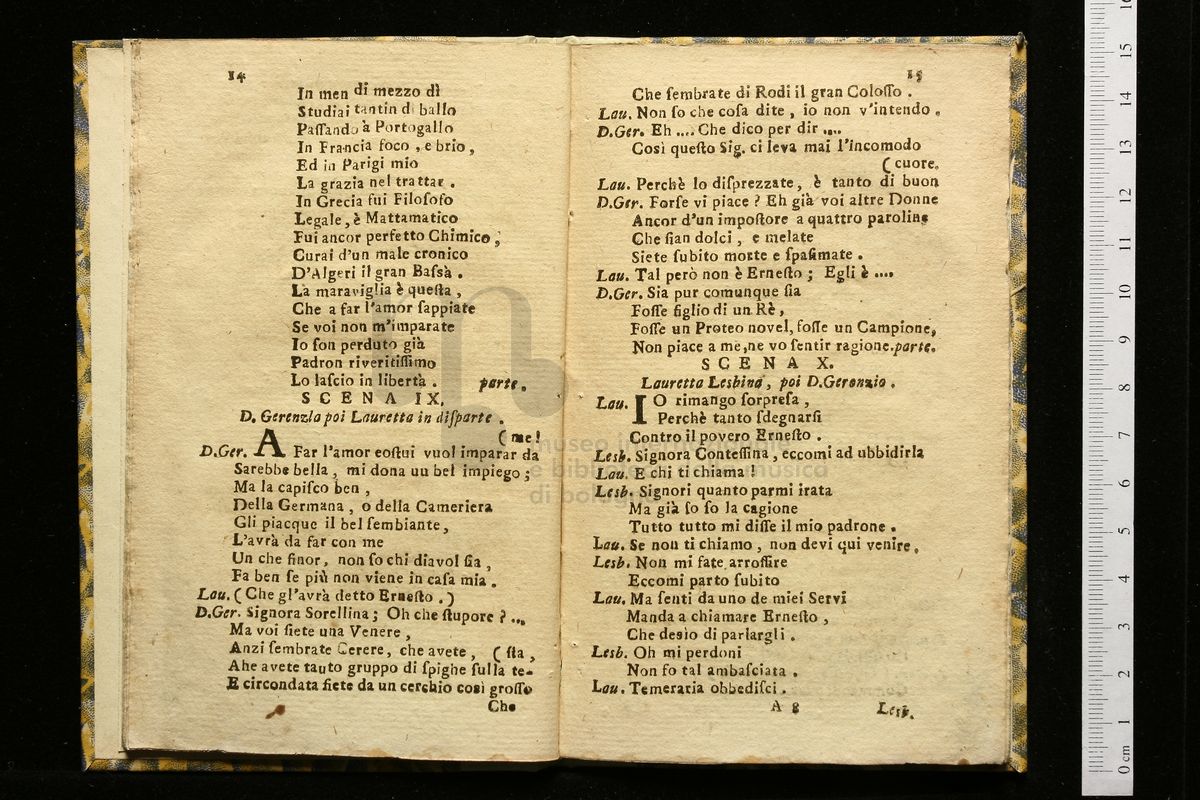 14
In men di mezzo dì
Studiai tantin di ballo
Paſſando à Portogallo
In Francia foco , e brio ,
Ed in Parigi mio
La grazia nel trattar .
In Grecia fui Filoſofo
Legale , è Mattamatico
Fui ancor perfetto Chimico ,
Curai d'un male cronico
D'Algeri il gran Baſsà .
La maraviglia è queſta ,
Che a far l'amor ſappiate
Se voi non m'imparate
Io ſon perduto già
Padron riveritiſſimo
Lo laſcio in libertà . parte.
SCENA IX.
D. Gerenzio poi Lauretta in diſparte .
( me!
D.Ger. A Far l'amor coſtui vuol imparar da
Sarebbe bella , mi dona uu bel impiego ;
Ma la capiſco ben ,
Della Germana , o della Cameriera
Gli piacque il bel ſembiante ,
L'avrà da far con me
Un che finor , non ſo chi diavol ſia ,
Fa ben ſe più non viene in caſa mia .
Lau. ( Che gl'avrà detto Erneſto . )
D.Ger. Signora Sorellina ; Oh che ſtupore ? ...
Ma voi ſiete una Venere ,
Anzi ſembrate Cerere , che avete , ( ſta ,
Ahe avete tauto gruppo di ſpighe ſulla te-
E circondata ſiete da un cerchio così groſſo
Che
15
Che ſembrate di Rodi il gran Coloſſo .
Lau. Non ſo che coſa dite , io non v'intendo .
D.Ger. Eh .... Che dico per dir ....
Così queſto Sig. ci leva mai l'incomodo
( cuore.
Lau. Perchè lo diſprezzate , è tanto di buon
D.Ger. Forſe vi piace ? Eh già voi altre Donne
Ancor d'un impoſtore a quattro paroline
Che ſian dolci , e melate
Siete ſubito morte e ſpaſimate .
Lau. Tal però non è Erneſto ; Egli è ....
D.Ger. Sia pur comunque ſia
Foſſe figlio di un Rè ,
Foſſe un Proteo novel, foſſe un Campione,
Non piace a me, ne vo ſentir ragione. parte.
SCENA X.
Lauretta Lesbina , poi D.Geronzio .
Lau. IO rimango ſorpreſa ,
Perchè tanto ſdegnarſi
Contro il povero Erneſto .
Lesb. Signora Conteſſina , eccomi ad ubbidirla
Lau. E chi ti chiama !
Lesb. Signori quanto parmi irata
Ma già ſo ſo la cagione
Tutto tutto mi diſſe il mio padrone .
Lau. Se non ti chiamo , non devi qui venire .
Lesb. Non mi fate arroſſire
Eccomi parto ſubito
Lau. Ma ſenti da uno de miei Servi
Manda a chiamare Erneſto ,
Che deſio di parlargli .
Lesb. Oh mi perdoni
Non fo tal ambaſciata .
Lau. Temeraria obbediſci .
A 8 Lesb.
museo
e biblioteca della musica
di bologna
0 cm 1 2 3 4 5 6 7 8 9 10 11 12 13 14 15 16